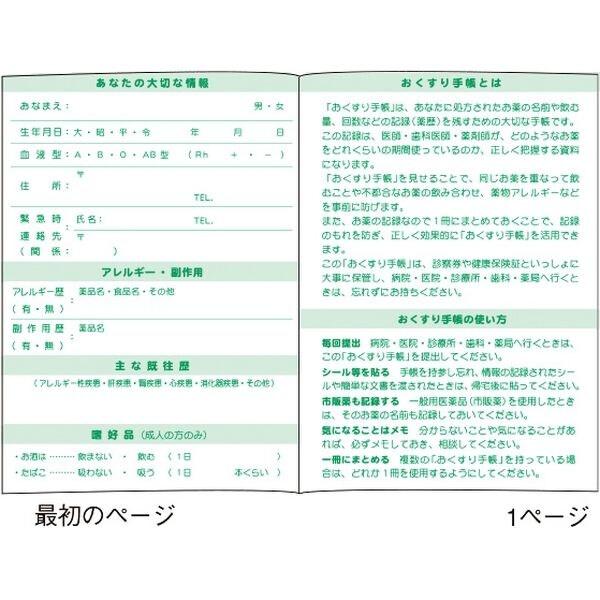 あなたの大切な情報
おなまえ： 男・女
生年月日：大・昭・平・令 年 月 日
血液型：A・B・O・AB型 （Rh ＋ ・ −）
〒
住所：
TEL.
緊急時 氏名： TEL.
連絡先：〒
（関係： ）
アレルギー・副作用
アレルギー歴：薬品名・食品名・その他
（有・無）
副作用歴：薬品名
（有・無）
主な既往歴
（アレルギー性疾患・肝疾患・腎疾患・心疾患・消化器疾患・その他）
嗜好品（成人の方のみ）
・お酒は ……… 飲まない ・ 飲む （1日 ）
・たばこ ……… 吸わない ・ 吸う （1日 本くらい）
最初のページ
おくすり手帳とは
「おくすり手帳」は、あなたに処方されたお薬の名前や飲む
量、回数などの記録（薬歴）を残すための大切な手帳です。
この記録は、医師・歯科医師・薬剤師が、どのようなお薬
をどれくらいの期間使っているのか、正しく把握する資料
になります。
「おくすり手帳」を見せることで、同じお薬を重なって飲
むことや不都合なお薬の飲み合わせ、薬物アレルギーなど
を事前に防げます。
また、お薬の記録なので1冊にまとめておくことで、記録
のもれを防ぎ、正しく効果的に「おくすり手帳」を活用でき
ます。
この「おくすり手帳」は、診察券や健康保険証といっしょに
大事に保管し、病院・医院・診療所・歯科・薬局へ行くと
きは、忘れずにお持ちください。
おくすり手帳の使い方
毎回提出 病院・医院・診療所・歯科・薬局へ行くときは、
この「おくすり手帳」を提出してください。
シール等を貼る 手帳を持参し忘れ、情報の記録されたシー
ルや簡単な文書を渡されたときは、帰宅後に貼ってください。
市販薬も記録する 一般用医薬品（市販薬）を使用したとき
は、そのお薬の名前も記録しておいてください。
気になることはメモ 分からないことや気になることがあ
れば、必ずメモしておき、相談してください。
一冊にまとめる 複数の「おくすり手帳」を持っている場合
は、どれか1冊を使用するようにしてください。
1ページ